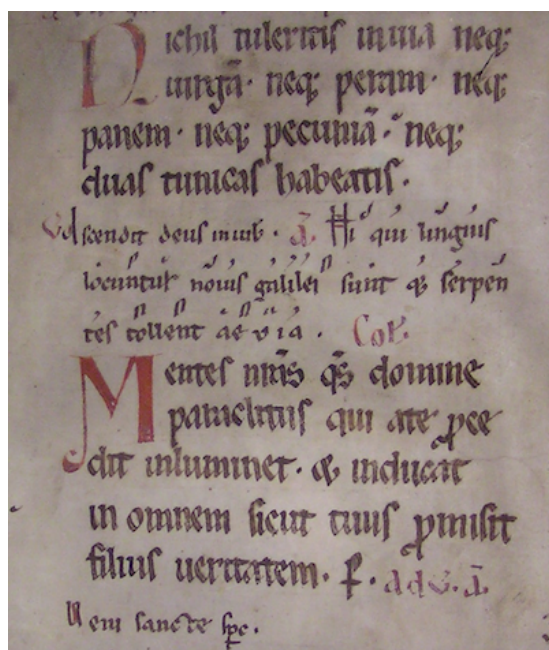 Nichil tuleritis in uia neq;
uirgā · neq; peram · neq;
panem · neq; pecuniā · neq;
duas tunicas habeatis ·
V Ascendit deus in iub · ā. Hi qui linguis
locuntur nouis galilei sunt & serpen
tes tollent aeuia . Coll
Mentes nr̄as q̄s domine
paraclitus qui a te ꝓce
dit inluminet · & inducat
in omnem sicut tuus ꝓmisit
filius ueritatem · F . ad V. ā.
Veni sancte sp̄c .